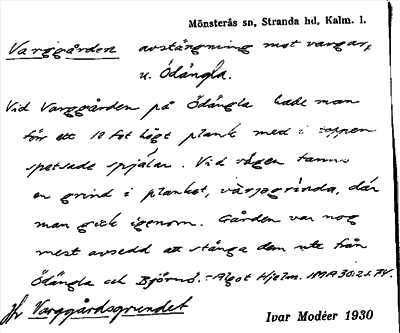 Mönsterås sn, Stranda hd, Kalm. l.
Varggården avstängning mot vargar,
u. Ödängla.
Vid Varggården på Ödängla hade man
förr ett 10 fot högt plank med i toppen
spetsade spjälar. Vid vägen fanns
en grind i planket, vargagrinda, där
man gick igenom. Gården var nog
mest avsedd att stänga dem ute från
Ödängla och Björnö. - Algot Hjelm.
Jfr Varggårdsgrundet
Ivar Modéer 1930